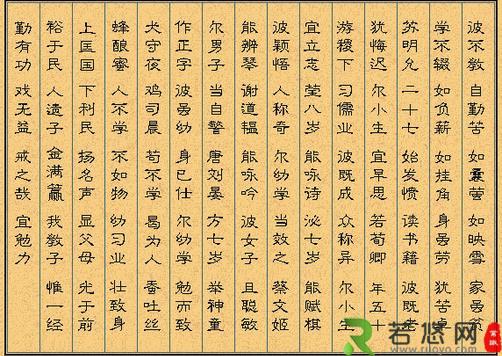 彼不教 自勤苦 如囊萤 如映雪 家虽贫
学不辍 如负薪 如挂角 身虽劳 犹苦卓
苏明允 二十七 始发愤 读书籍 彼既老
犹悔迟 尔小生 宜早思 若荀卿 年五十
游稷下 习儒业 彼既成 众称异 尔小生
宜立志 莹八岁 能咏诗 泌七岁 能赋棋
彼颖悟 人称奇 尔幼学 当效之 蔡文姬
能辨琴 谢道韫 能咏吟 彼女子 且聪敏
尔男子 当自警 唐刘晏 方七岁 举神童
作正字 彼虽幼 身已仕 尔幼学 勉而致
犬守夜 鸡司晨 苟不学 曷为人 蚕吐丝
蜂酿蜜 人不学 不如物 幼习业 壮致身
上匡国 下利民 扬名声 显父母 光于前
裕于民 人遗子 金满籯 我教子 惟一经
勤有功 戏无益 戒之哉 宜勉力
若悠网
www.ruoyo.com